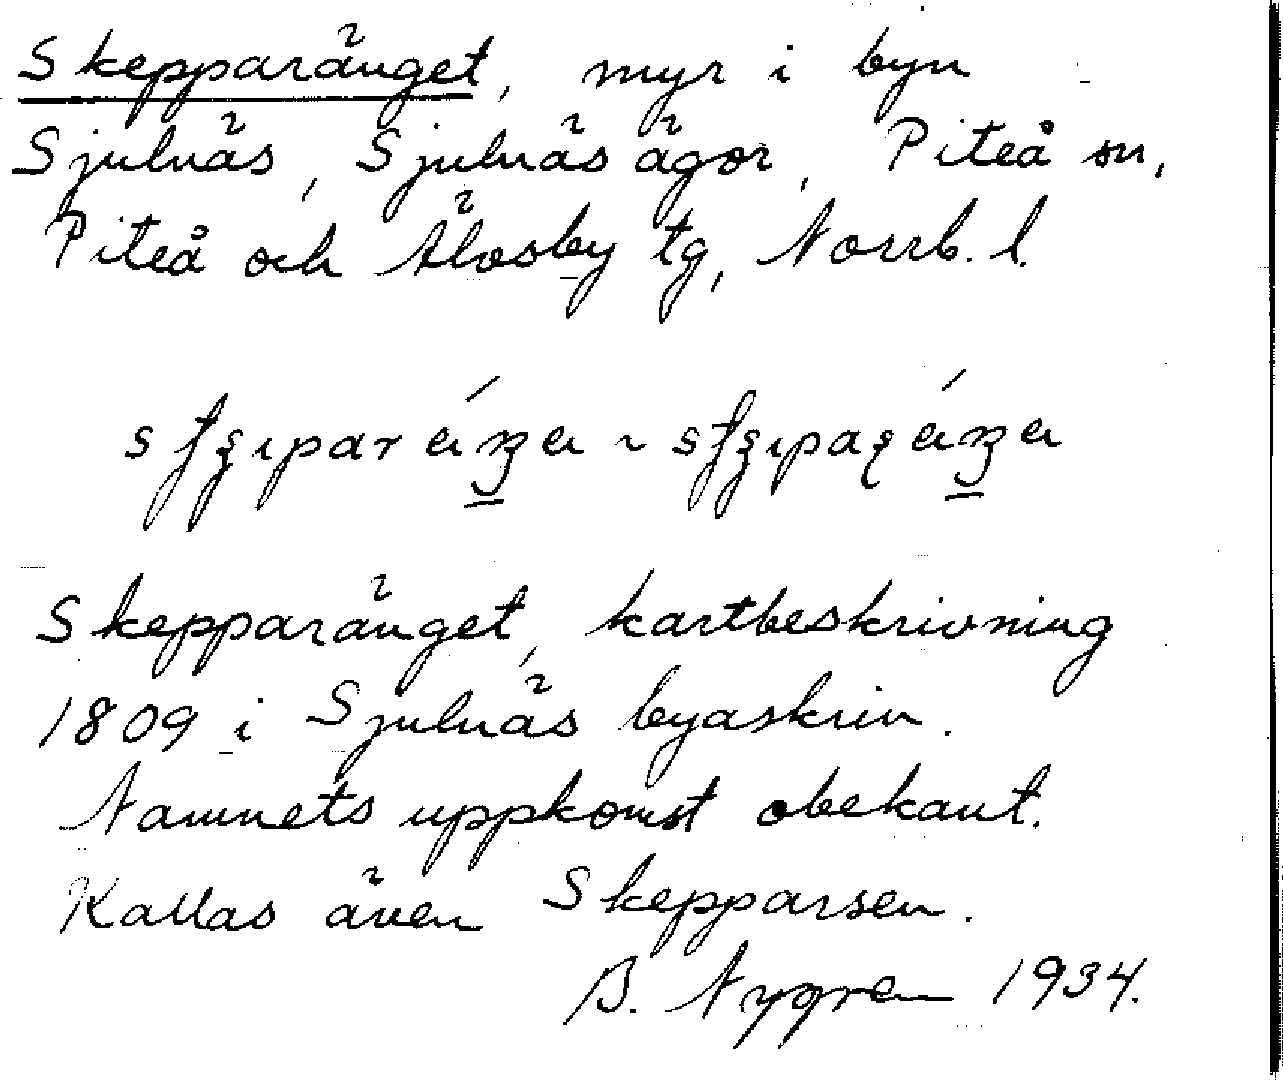 Skepparänget, myr i byn
Sjulnäs, Sjulnäs ägor, Piteå sn,
Piteå och Älvsby tg, Norrb. l.
Skepparänget, kartbeskrivning
1809 i Sjulnäs byaskrin.
Namnets uppkomst obekant.
Kallas även Skepparsen.
B. Nygren 1934.